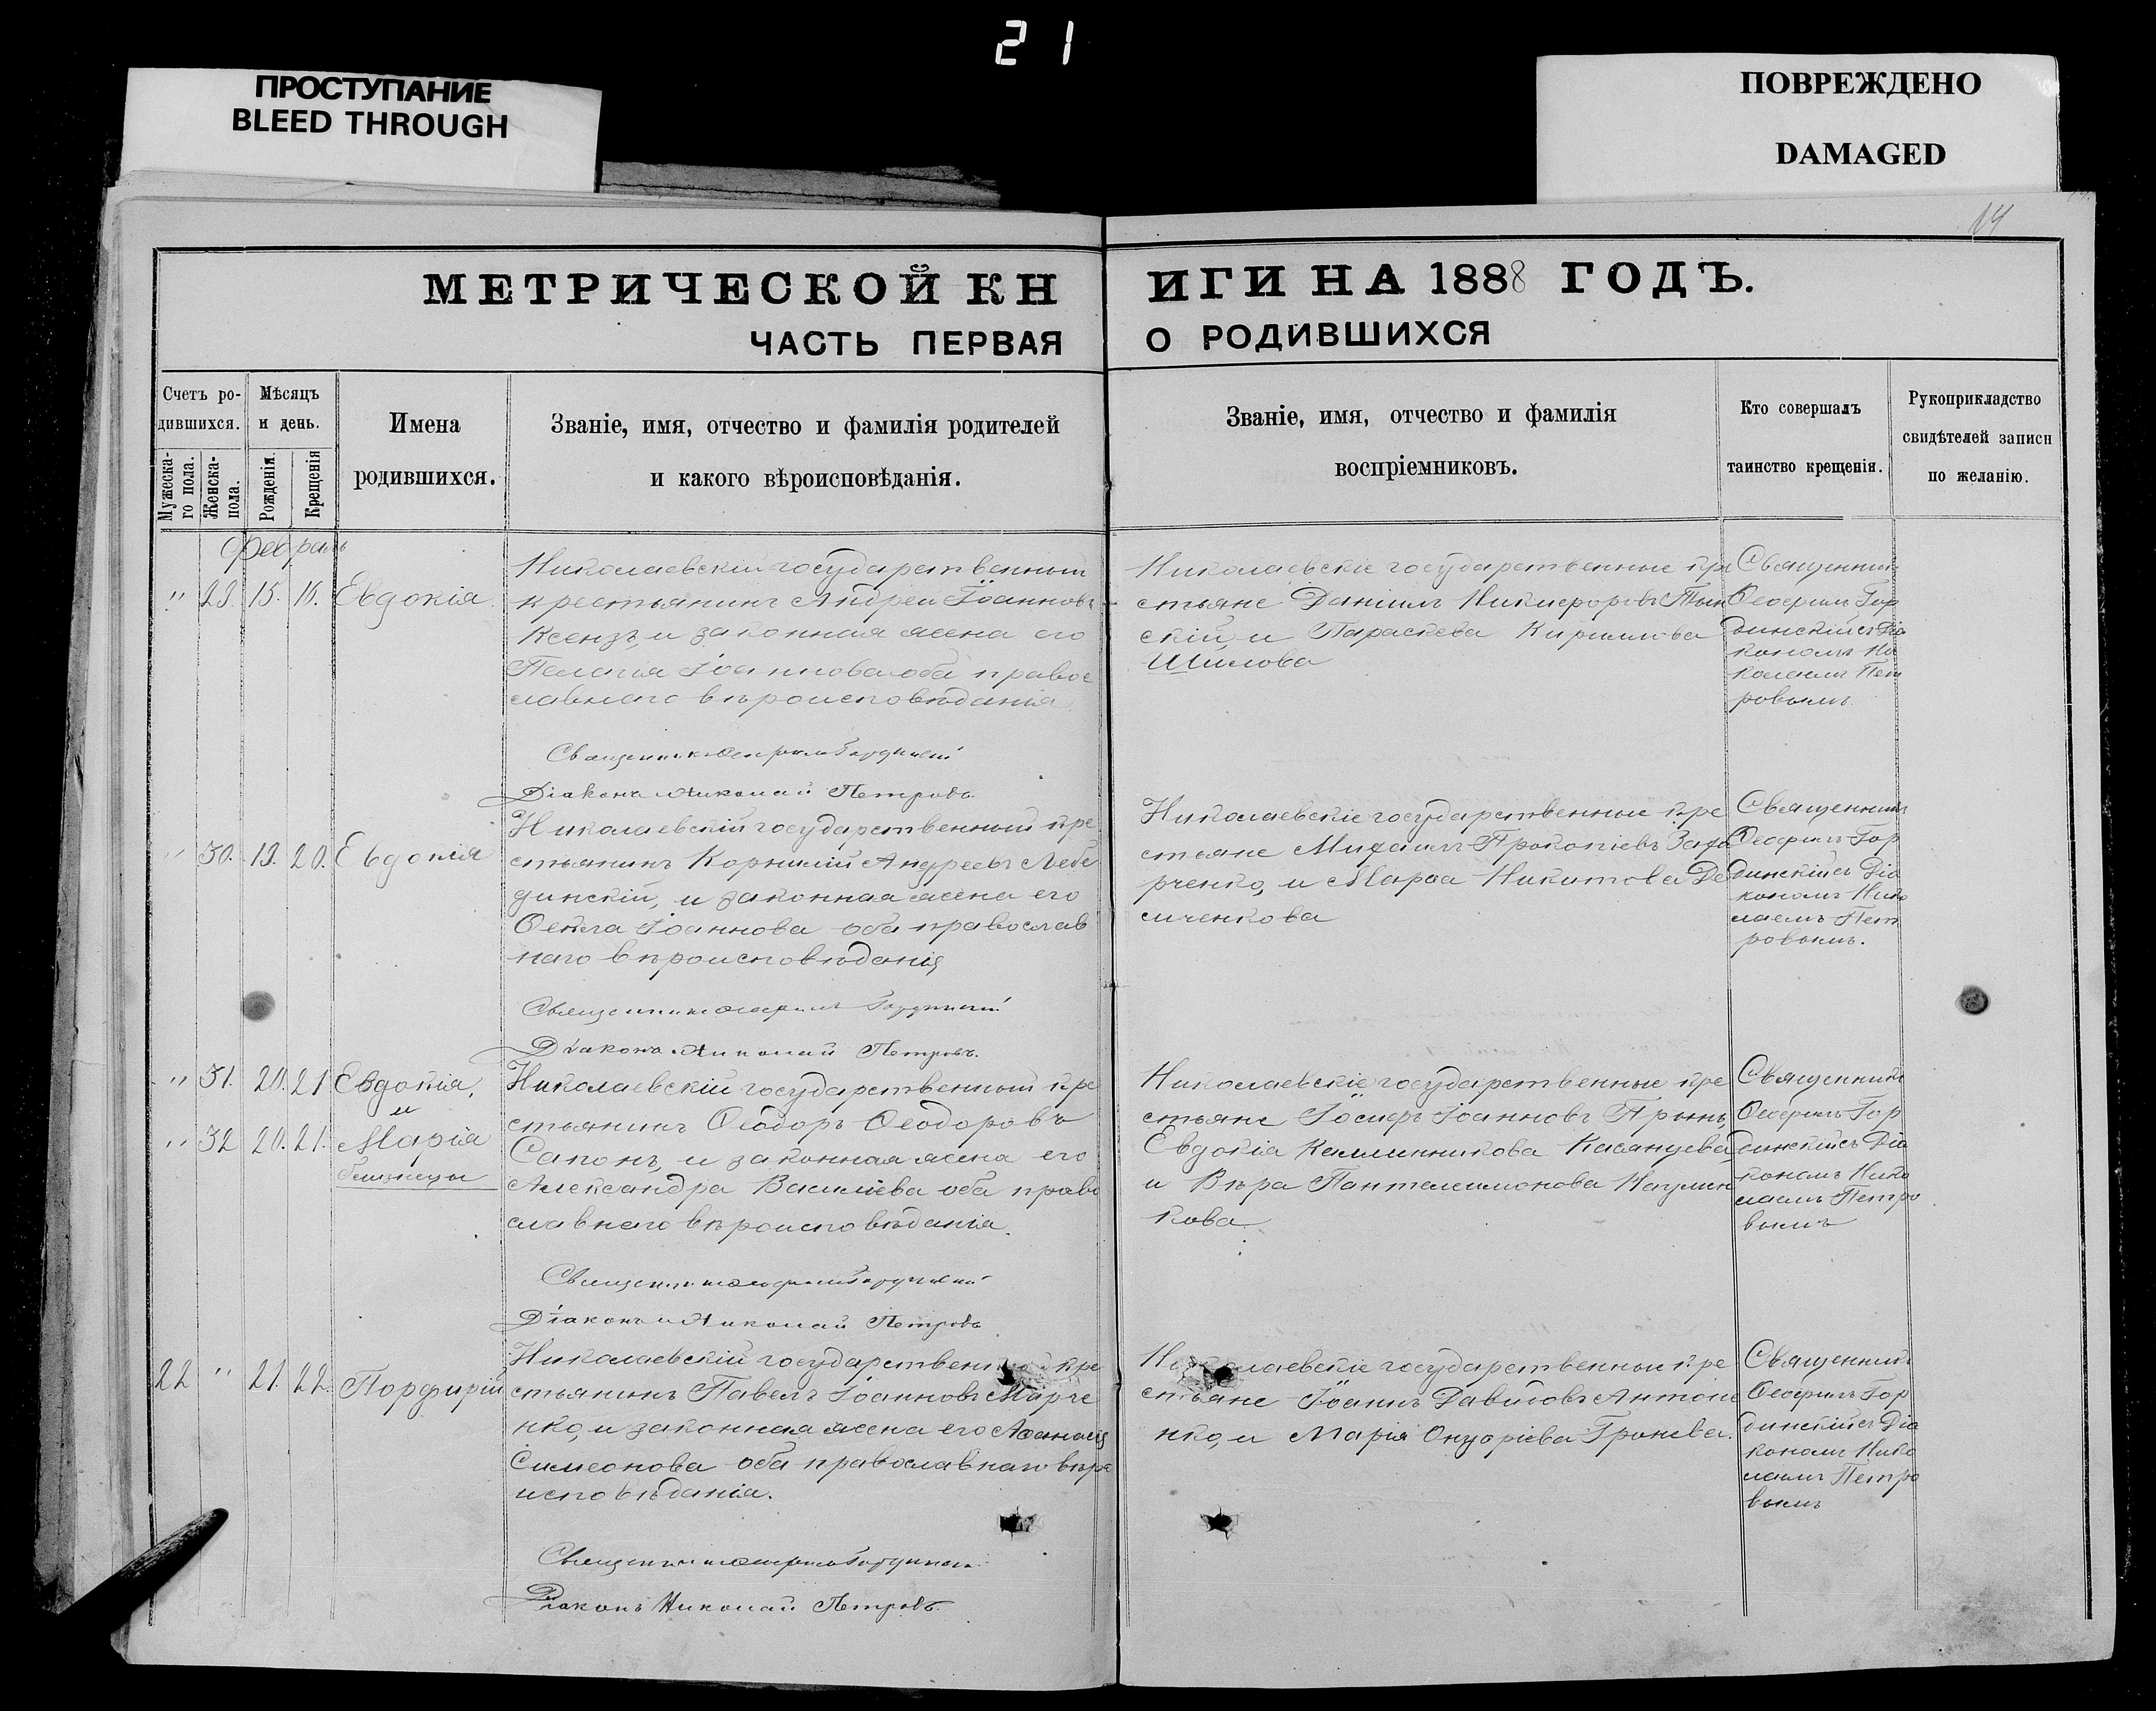 21
ПРОСТУПАНИЕ
BLEED THROUGH
ПОВРЕЖДЕНО
DAMAGED
14
МЕТРИЧЕСКОЙ КНИГИ НА 1888 ГОДЪ.
ЧАСТЬ ПЕРВАЯ О РОДИВШИХСЯ
Счетъ ро-
дившихся.
Мужеска-
го пола.
Женска-
пола.
Мѣсяцъ
и день.
Рожденія.
Крещенія
Имена
родившихся.
Званіе, имя, отчество и фамилія родителей
и какого вѣроисповѣданія.
Званіе, имя, отчество и фамилія
воспріемниковъ.
Кто совершалъ
таинство крещенія.
Рукоприкладство
свидѣтелей записи
по желанію.
Февраль
" 29. 15. 16. Евдокія
Николаевскій государственный
крестьянинъ Андрей Іоанновъ
Ксензъ, и законная жена его
Пелагія Іоаннова оба правос
славнаго вѣроисповѣданія.
Священникъ Ѳеофилъ Гординскій
Діаконъ Николай Петровъ.
Николаевскіе государственные кре
стьяне Даніилъ Никифоровъ
скій, и Параскева Кириллова
Шилова
Священникъ
Ѳеофилъ Гор
динскій съ Діа
кономъ Ни
колаемъ Пет
ровымъ.
" 30. 19. 20. Евдокія
Николаевскій государственный кре
стьянинъ Корнилій Андреевъ Лебе
динскій, и законная жена его
Ѳекла Іоаннова оба православ
наго вѣроисповѣданія
Священникъ Ѳеофилъ Гординскій
Діаконъ Николай Петровъ.
Николаевскіе государственные кре
стьяне Михаилъ Прокопіевъ Заха
рченко, и Марѳа Никитова Де
сиченкова
Священникъ
Ѳеофилъ Гор
динскій съ Діа
кономъ Нико
лаемъ Пет
ровымъ.
" 31. 20. 21 Евдокія,
и
" 32 20. 21. Марія
близнецы
Николаевскій государственный кре
стьянинъ Ѳеодоръ Ѳеодоровъ
Сапонъ, и законная жена его
Александра Василіева оба право
славнаго вѣроисповѣданія.
Священникъ Ѳеофилъ Гординскій
Діаконъ Николай Петровъ
Николаевскіе государственные кре
стьяне Іосифъ Іоанновъ
Евдокія Каллинникова
и Вѣра Пантелеимонова Наумен
кова.
Священникъ
Ѳеофилъ Гор
динскій съ Діа
кономъ Нико
лаемъ Петро
вымъ
22 " 21. 22. Порфирій
Николаевскій государственный кре
стьянинъ Павелъ Іоанновъ Марче
нко, и законная жена его Аѳанасія
Симеонова оба православнаго вѣро
исповѣданія.
Священникъ Ѳеофилъ Гординскій
Діаконъ Николай Петровъ.
Николаевскіе государственные кре
стьяне Іоаннъ Давидовъ Антоне
нко, и Марія Онуфріева Гронева.
Священникъ
Ѳеофилъ Гор
динскій съ Діа
кономъ Нико
лаемъ Петро
вымъ